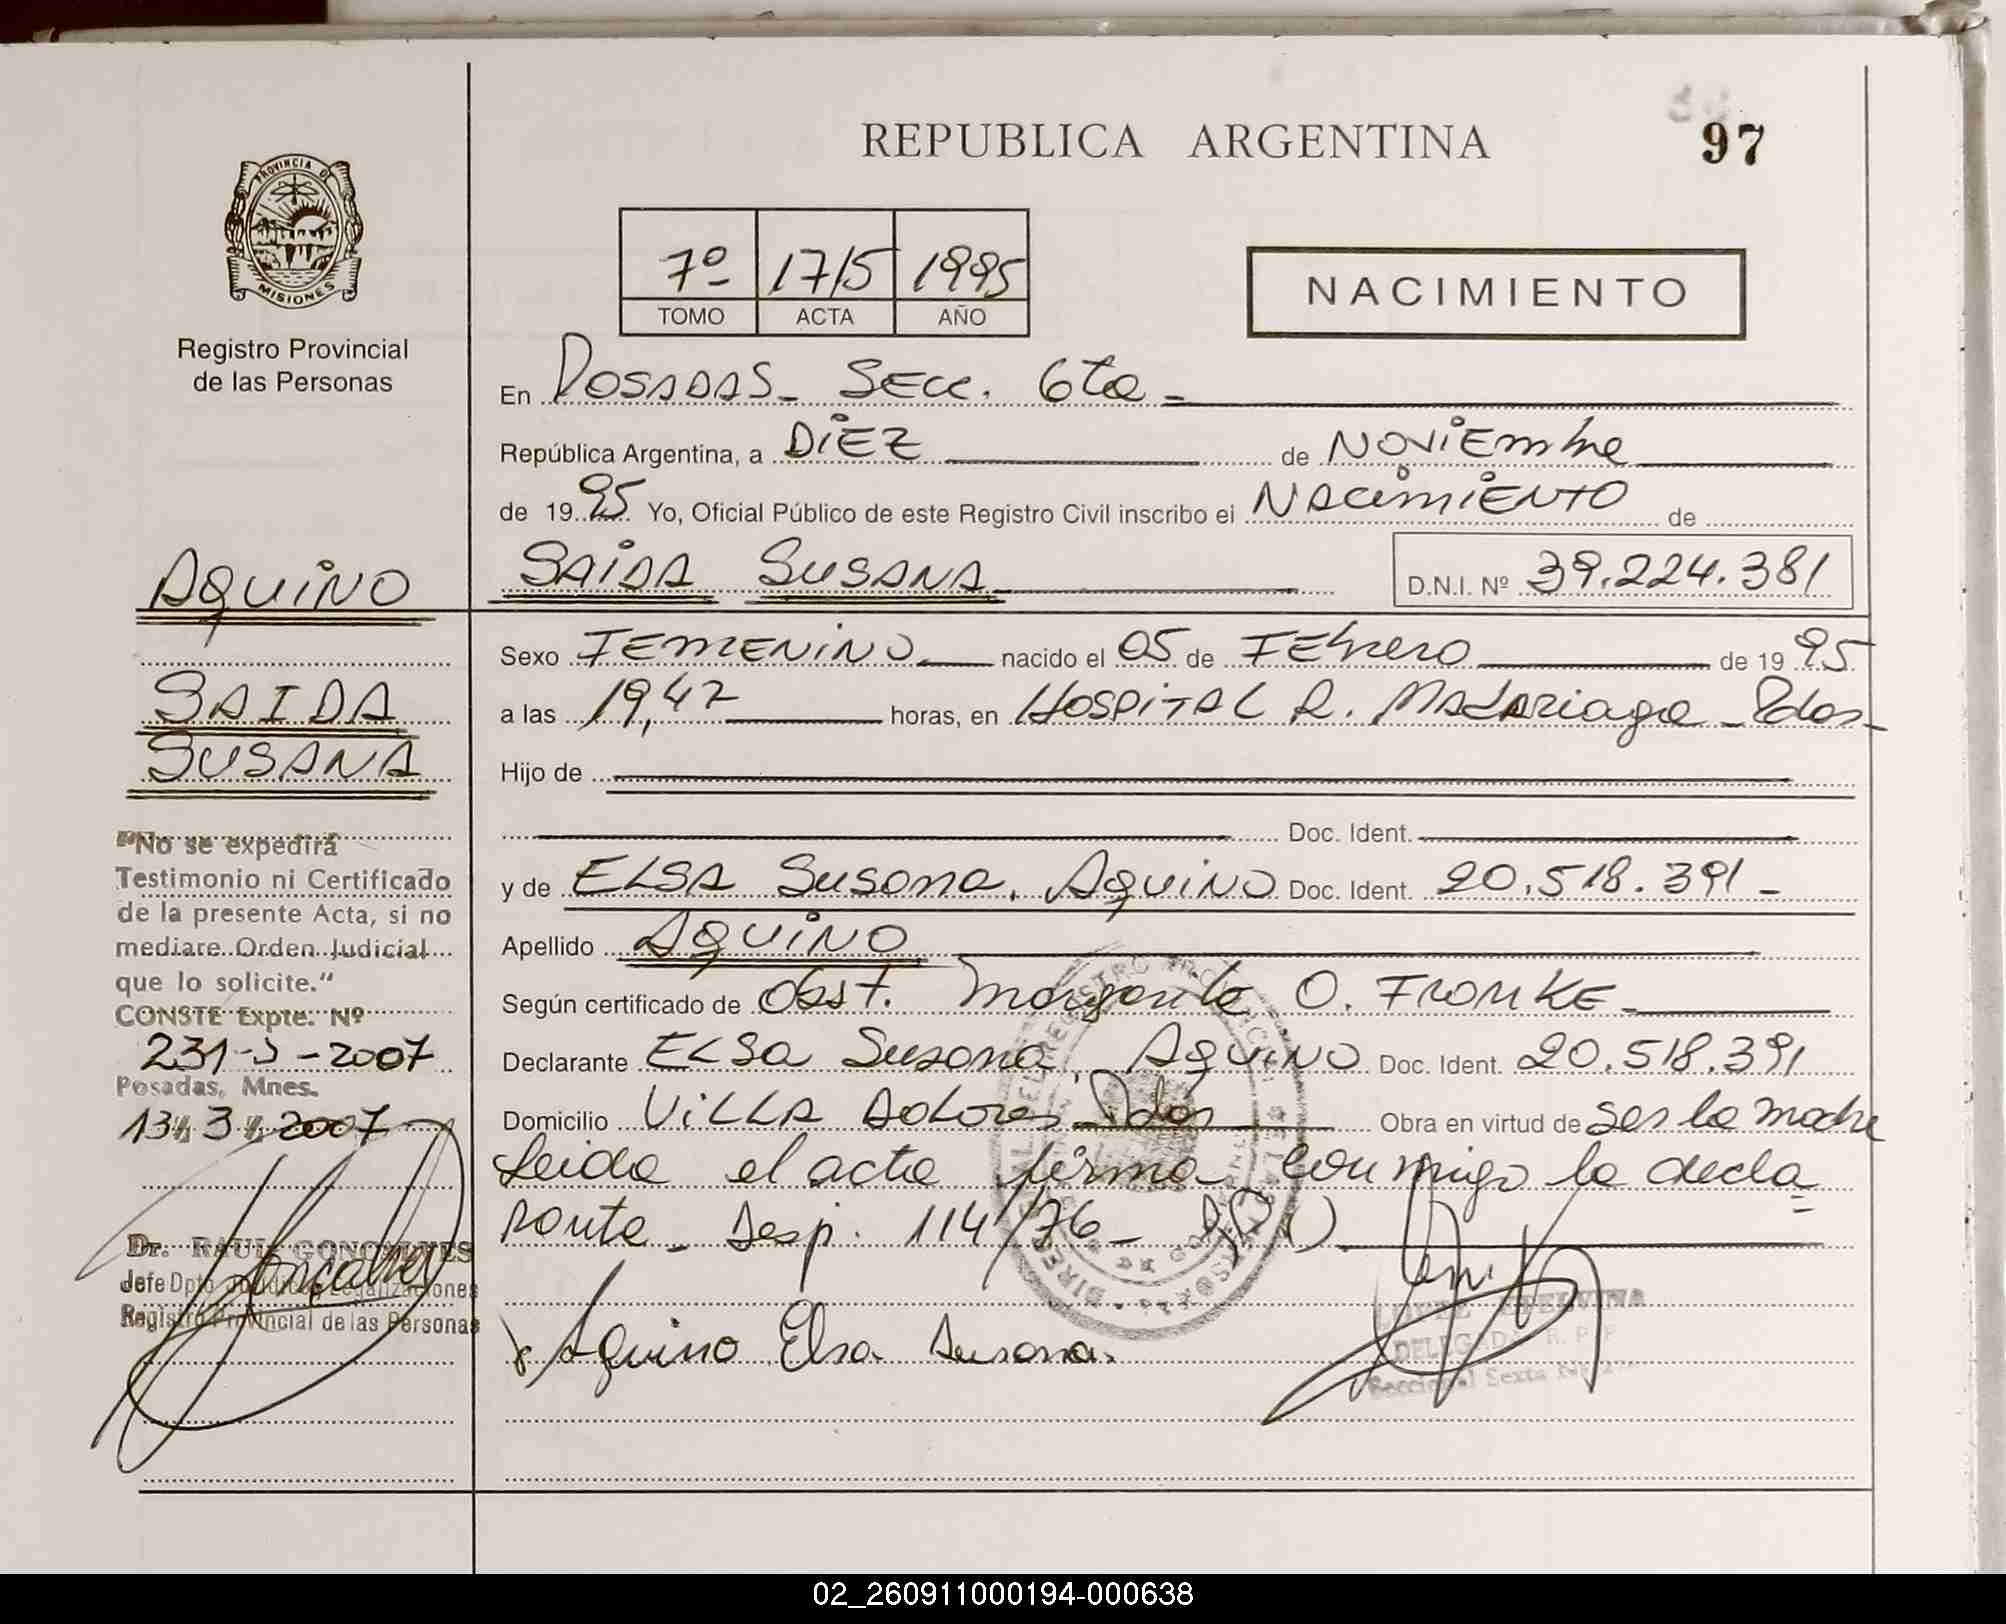 REPUBLICA ARGENTINA
97
PROVINCIA DE
MISIONES
Registro Provincial
de las Personas
7º 1715 1995
TOMO ACTA AÑO
NACIMIENTO
En POSADAS - SECC. 6ta -
República Argentina, a DIEZ de NOVIEmbre
de 1995 Yo, Oficial Público de este Registro Civil inscribo el NACIMIENTO de
SAIDA SUSANA D.N.I. Nº 39.224.381
AQUINO
SAIDA
SUSANA
Sexo FEMENINO nacido el 05 de FEbrero de 1995
a las 19,47 horas, en HOSPITAL R. MADARIAGA - Pdas -
Hijo de
Doc. Ident.
y de ELSA Susana. AQUINO Doc. Ident. 20.518.391 -
Apellido AQUINO
Según certificado de Obst. Margarita O. FROMKE
Declarante ELSA Susana AQUINO Doc. Ident. 20.518.391
Domicilio VILLA DOLORES - Pdas Obra en virtud de ser la madre
Leida el acta firma conmigo la decla
rante - Desp. 114/76 -
Aquino Elsa Susana.
"No se expedirá
Testimonio ni Certificado
de la presente Acta, si no
mediare Orden Judicial
que lo solicite."
CONSTE Expte. Nº
231-J-2007
Posadas, Mnes.
13/3/2007
Dr. RAUL GONCALVES
Jefe Dpto Juridico Legalizaciones
Registro Provincial de las Personas
LOPEZ ETELVINA
DELEGADA R. P. P.
Seccional Sexta
02_260911000194-000638